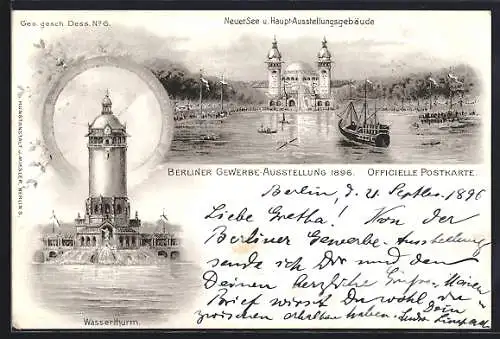 Ges. gesch. Dess. No 6.
Neuer See u. Haupt-Ausstellungsgebäude
KUNSTANSTALT J. MIESLER, BERLIN S.
BERLINER GEWERBE-AUSSTELLUNG 1896. OFFICIELLE POSTKARTE.
Berlin, d. 4 Septbr. 1896
Liebe Gretha! Von der
Berliner Gewerbe-Ausstellung
sende ich Dir und den
Deinen herzliche Grüsse. Meinen
Brief wirst Du wohl
zwischen erhalten haben. Dein
Wasserthurm.